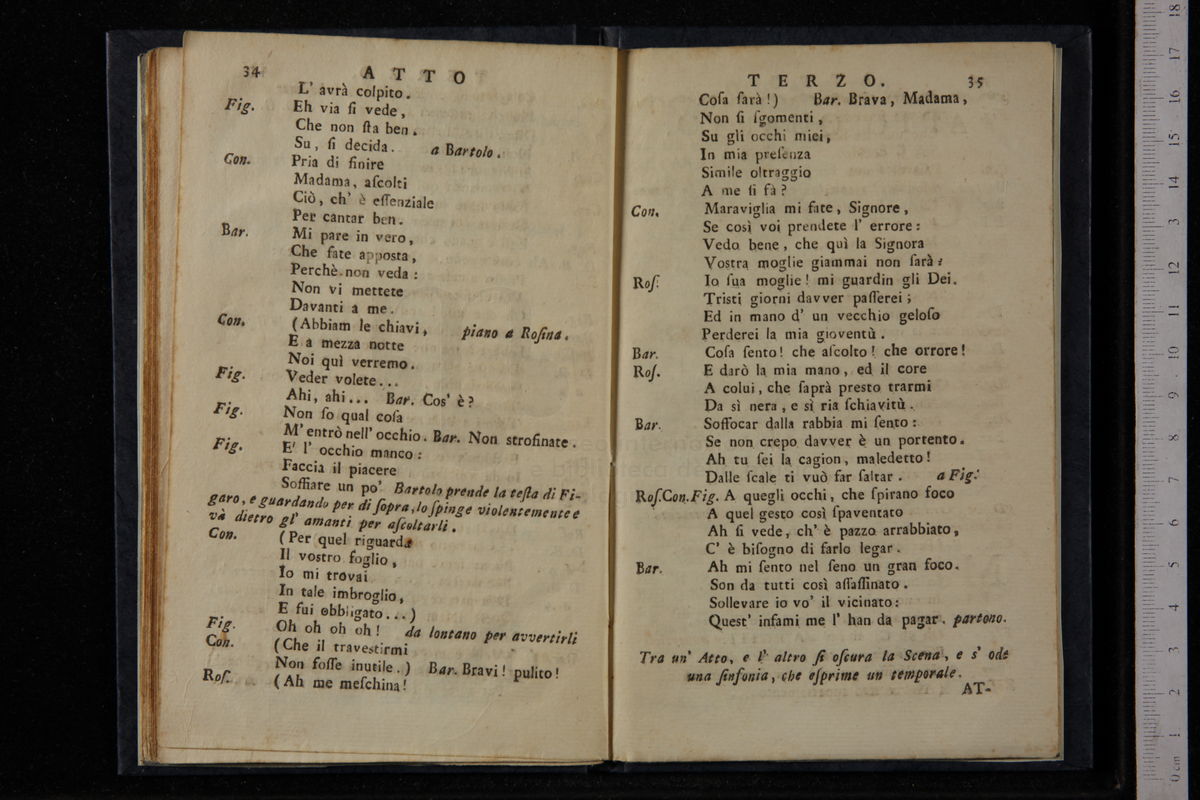 34 ATTO
L' avrà colpito.
Fig. Eh via ſi vede,
Che non ſta ben.
Su, ſi decida. a Bartolo.
Con. Pria di finire
Madama, aſcolti
Ciò, ch' è eſſenziale
Per cantar ben.
Bar. Mi pare in vero,
Che fate apposta,
Perchè non veda:
Non vi mettete
Davanti a me.
Con. (Abbiam le chiavi, piano a Roſina.
E a mezza notte
Noi quì verremo.
Fig. Veder volete...
Ahi, ahi... Bar. Cos' è?
Fig. Non ſo qual coſa
M' entrò nell' occhio. Bar. Non strofinate.
Fig. E' l' occhio manco:
Faccia il piacere
Soffiare un po' Bartolo prende la teſta di Fi-
garo, e guardando per di ſopra, lo ſpinge violentemente e
và dietro gl' amanti per aſcoltarli.
Con. (Per quel riguarda
Il vostro foglio,
Io mi trovai
In tale imbroglio,
E fui obbligato...)
Fig. Oh oh oh oh! da lontano per avvertirli
Con. (Che il travestirmi
Non foſſe inutile.) Bar. Bravi! pulito!
Roſ. (Ah me meſchina!
TERZO. 35
Coſa ſarà!) Bar. Brava, Madama,
Non ſi ſgomenti,
Su gli occhi miei,
In mia preſenza
Simile oltraggio
A me ſi fà?
Con. Maraviglia mi fate, Signore,
Se così voi prendete l' errore:
Vedo bene, che quì la Signora
Vostra moglie giammai non ſarà:
Roſ. Io ſua moglie! mi guardin gli Dei.
Tristi giorni davver paſſerei;
Ed in mano d' un vecchio geloſo
Perderei la mia gioventù.
Bar. Coſa ſento! che aſcolto! che orrore!
Roſ. E darò la mia mano, ed il core
A colui, che ſaprà presto trarmi
Da sì nera, e sì ria ſchiavitù.
Bar. Soffocar dalla rabbia mi ſento:
Se non crepo davver è un portento.
Ah tu ſei la cagion, maledetto!
Dalle ſcale ti vuò far ſaltar. a Fig.
Roſ.Con.Fig. A quegli occhi, che ſpirano foco
A quel gesto così ſpaventato
Ah ſi vede, ch' è pazzo arrabbiato,
C' è biſogno di farlo legar.
Bar. Ah mi ſento nel ſeno un gran foco.
Son da tutti così aſſaſſinato.
Sollevare io vo' il vicinato:
Quest' infami me l' han da pagar. partono.
Tra un' Atto, e l' altro ſi oſcura la Scena, e s' ode
una ſinfonia, che eſprime un temporale.
AT-